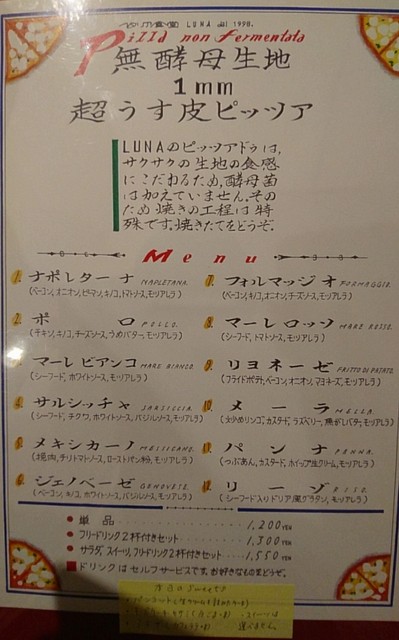 LUNA 1998.
Pizza non fermentata
無酵母生地
1mm
超うす皮ピッツア
LUNAのピッツアドゥは、
サクサクの生地の食感
にこだわるため、酵母菌
は加えていません。その
ため焼きの工程は特
殊です。焼きたてをどうぞ。
Menu
1. ナポレターナ NAPLETANA.
(ベーコン、オニオン、ピーマン、キノコ、トマトソース、モツアレラ)
2. ポロ POLLO.
(チキン、キノコ、チーズソース、うめバター、モツアレラ)
3. マーレビアンコ MARE BIANCO.
(シーフード、ホワイトソース、モツアレラ)
4. サルシッチャ SARSICCIA.
(シーフード、チクワ、ホワイトソース、バジルソース、モツアレラ)
5. メキシカーノ MESSICANO.
(焼肉、チリトマトソース、ローストパン粉、モツアレラ)
6. ジェノベーゼ GENOVESE.
(ベーコン、キノコ、ホワイトソース、バジルソース、モツアレラ)
7. フォルマッジオ FORMAGGIO.
(ベーコン、キノコ、オニオン、チーズソース、モツアレラ)
8. マーレロッソ MARE ROSSO.
(シーフード、トマトソース、モツアレラ)
9. リヨネーゼ FRITTO DI PATATE.
(フライドポテト、ベーコン、オニオン、マヨネーズ、モツアレラ)
10. メーラ MELLA.
(太かめリンゴ、カスタード、ラズベリー、焦がしバター、モツアレラ)
11. パンナ PANNA.
(つぶあん、カスタード、ホイップ生クリーム、モツアレラ)
12. リーゾ RISO.
(シーフード入りドリア風グラタン、モツアレラ)
● 単品 1,200YEN
● フリードリンク2杯付きセット 1,300YEN
● サラダ、スイーツ、フリードリンク2杯付きセット 1,550YEN
■ ドリンクはセルフサービスです。お好きなものをどうぞ。
本日のSweets